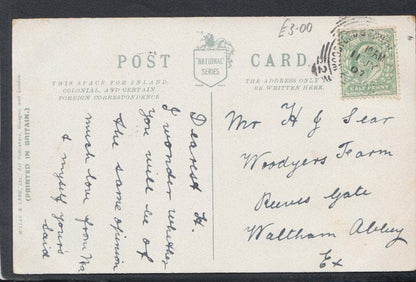 £3-00
POST CARD.
NATIONAL SERIES.
THIS SPACE FOR INLAND,
COLONIAL, AND CERTAIN
FOREIGN CORRESPONDENCE
THE ADDRESS ONLY TO
BE WRITTEN HERE.
(PRINTED IN BRITAIN.)
Dearest H.
I wonder whether
you will be of
the same opinion
much love from
& myself yours
said
Mr H J Sear
Woodyers Farm
Reeves Gate
Waltham Abbey
Ex
HALF PENNY